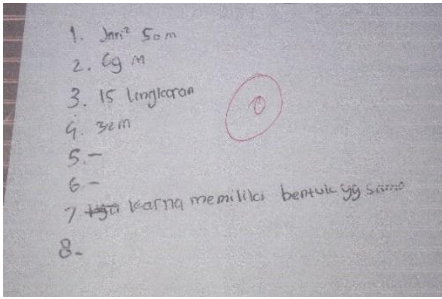 1. Jari² 50 m
2. 69 m
3. 15 Lingkaran
4. 32 m
5. -
6 -
7 karna memiliki bentuk yg sama
8.
0